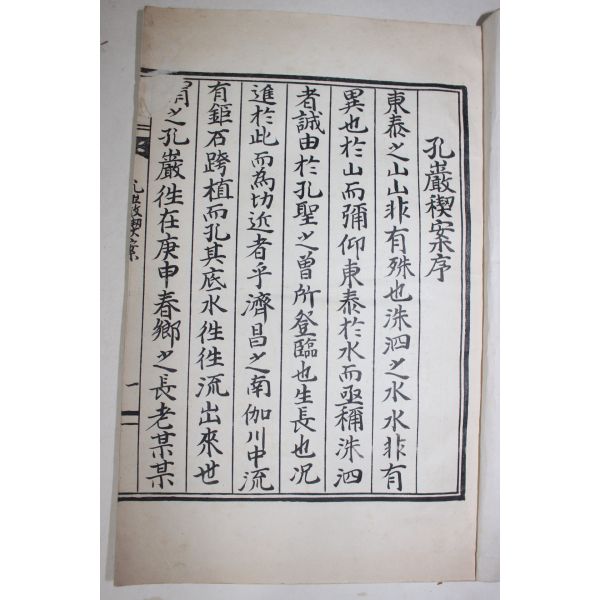 孔巖稧案序
東泰之山山非有殊也洙泗之水水非有
異也於山而彌仰東泰於水而亟稱洙泗
者誠由於孔聖之曾所登臨也生長也况
進於此而為切近者乎濟昌之南伽川中流
有鉅石跨植而孔其底水徃徃流出來世
謂之孔巖徃在庚申春鄉之長老某某
孔巖稧案
一